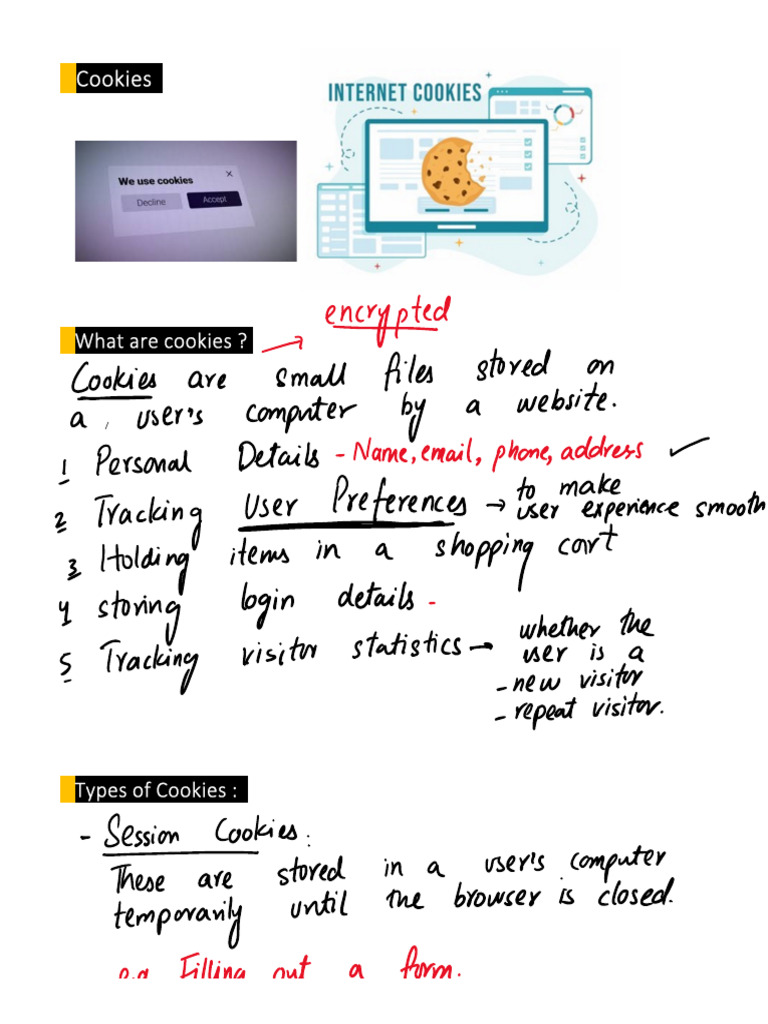 Cookies
INTERNET COOKIES
We use cookies ×
Decline Accept
encrypted
What are cookies ? →
Cookies are small files stored on
a user's computer by a website.
1 Personal Details - Name, email, phone, address ✓
2 Tracking User Preferences → to make
user experience smooth
3 Holding items in a shopping cart
4 storing login details -
5 Tracking visitor statistics → whether the
user is a
- new visitor
- repeat visitor.
Types of Cookies :
- Session Cookies:
These are stored in a user's computer
temporarily until the browser is closed.
e.g Filling out a form.